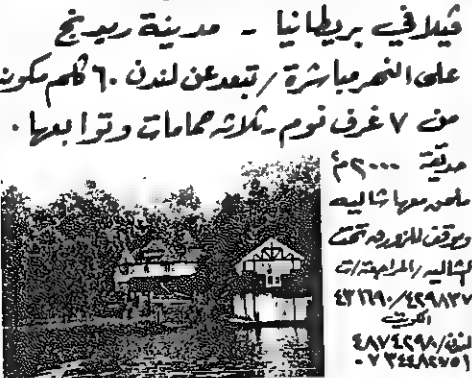 ڤيلا في بريطانيا - مدينة ريدنج
على النهر مباشرة / تبعد عن لندن ٦٠ كلم مكونة
من ٧ غرف نوم ـ ثلاثة حمامات وتوابعها ٠
حديقة ٢٠٠٠م٢
ملحق معها شاليه
وموقف للزورق تحت
الشاليه / للمراجعة / ت
٤٣١٦٩٠/٤٢٩٨٣٧
الكويت
لندن/٤٨٧٤٢٩٨